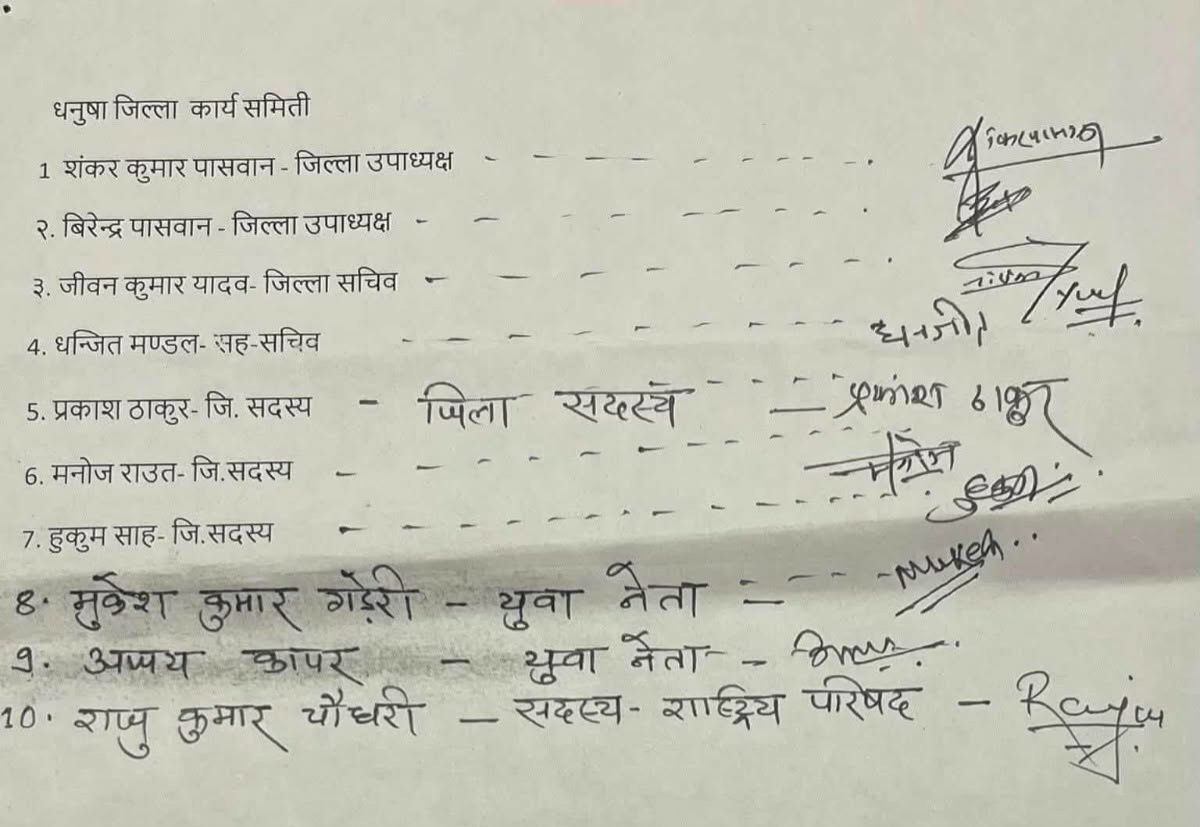 धनुषा जिल्ला कार्य समिती
1 शंकर कुमार पासवान - जिल्ला उपाध्यक्ष - - - - - - - - - .
२. बिरेन्द्र पासवान - जिल्ला उपाध्यक्ष - - - - - - - - .
३. जीवन कुमार यादव- जिल्ला सचिव - - - - - - - - .
4. धन्जित मण्डल- सह-सचिव - - - - - - - - - धनजीत
5. प्रकाश ठाकुर- जि. सदस्य - जिला सदस्य - - - - प्रकाश ठाकुर
6. मनोज राउत- जि.सदस्य - - - - - - - - - मनोज
7. हुकुम साह- जि.सदस्य - - - - - - - - - - हुकुम
8. मुकेश कुमार गड़ेरी - युवा नेता - - - - - Mukesh
9. अजय कापर - युवा नेता -
10. राजु कुमार चौधरी - सदस्य - राष्ट्रिय परिषद - Ranjay